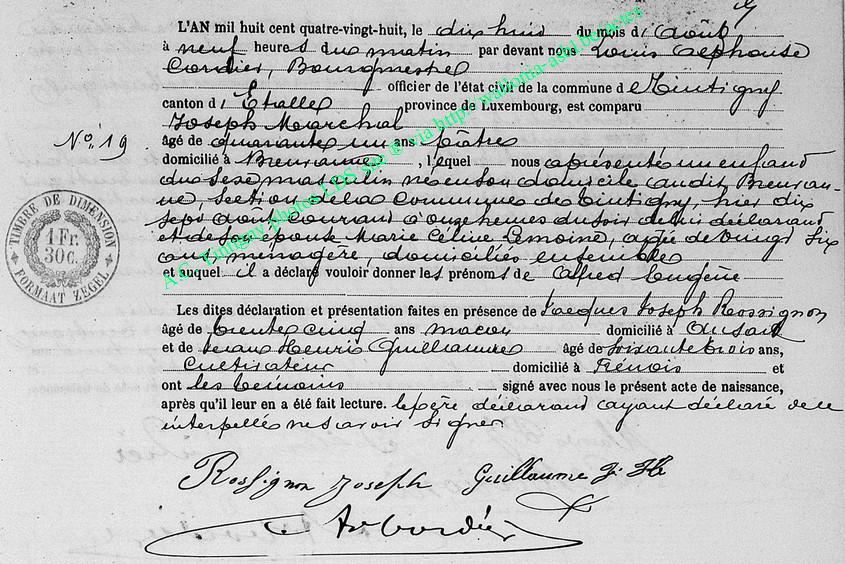 L'AN mil huit cent quatre-vingt-huit, le dix huit du mois d'Août
à neuf heures du matin par devant nous Louis Alphonse
Cordier, Bourgmestre
officier de l'état civil de la commune de Tintigny
canton d'Etalle province de Luxembourg, est comparu
Joseph Marchal
No. 19
âgé de quarante un ans, pâtre
domicilié à Breuvanne, lequel nous a présenté un enfant
du sexe masculin né en son domicile audit Breuvan-
ne, section de la Commune de Tintigny, hier dix
sept août courant à onze heures du soir de lui déclarant
et de son épouse Marie Céline Lemoine, agée de vingt six
ans, ménagère, domiciliés ensemble
et auquel il a déclaré vouloir donner les prénoms de Alfred Eugène
Les dites déclaration et présentation faites en présence de Jacques Joseph Rossignon
âgé de trente cinq ans maçon domicilié à Ansart
et de Jean Henri Guillaume âgé de soixante trois ans,
Cultivateur domicilié à Frenois et
ont les témoins signé avec nous le présent acte de naissance,
après qu'il leur en a été fait lecture. le père déclarant ayant déclaré de ce
interpellé ne savoir signer
Rossignon Joseph Guillaume J. H
Cordier
TIMBRE DE DIMENSION
1 Fr.
30 c.
FORMAAT ZEGEL
A.C. Tintigny photos LDS site ® via http://wallonia-asbl.be/actes